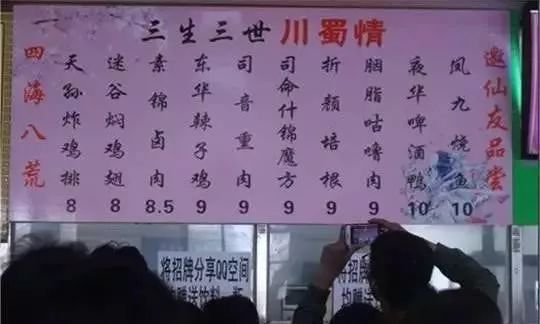 三生三世川蜀情
四海八荒
天孙炸鸡排 8
迷谷焖鸡翅 8
素锦卤肉 8.5
东华辣子鸡 9
司音重肉 9
司命什锦魔方 9
折颜培根 9
胭脂咕噜肉 9
夜华啤酒鸭 10
凤九烧鱼 10
邀仙友品尝
将招牌分享QQ空间
均赠送饮料一瓶
将招牌
均赠送